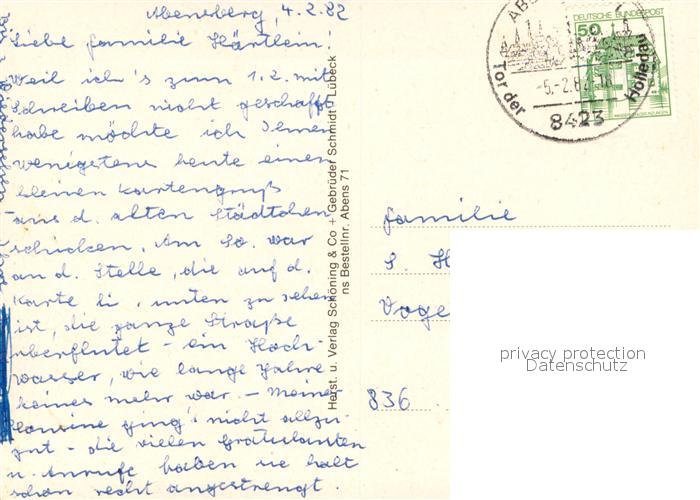 Abensberg, 4.2.82
Liebe Familie Härtlein!
Weil ich's zum 1.2. mit
Schreiben nicht geschafft
habe möchte ich Ihnen
wenigstens heute einen
kleinen Kartengruß
aus d. alten Städtchen
schicken. Am So. war
an d. Stelle, die auf d.
Karte li. unten zu sehen
ist, die ganze Straße
überflutet - ein Hoch-
wasser, wie lange Jahre
keines mehr war. - Meiner
ging's nicht allzu-
gut - die vielen Gratulanten
u. Anrufe haben sie halt
schon recht angestrengt.
Herst. u. Verlag Schöning & Co + Gebrüder Schmidt, Lübeck
ns Bestellnr. Abens 71
DEUTSCHE BUNDESPOST
50
ABE
Tor der Holledau
-5.-2.82
8423
Familie
S. H
Voge
836
privacy protection
Datenschutz